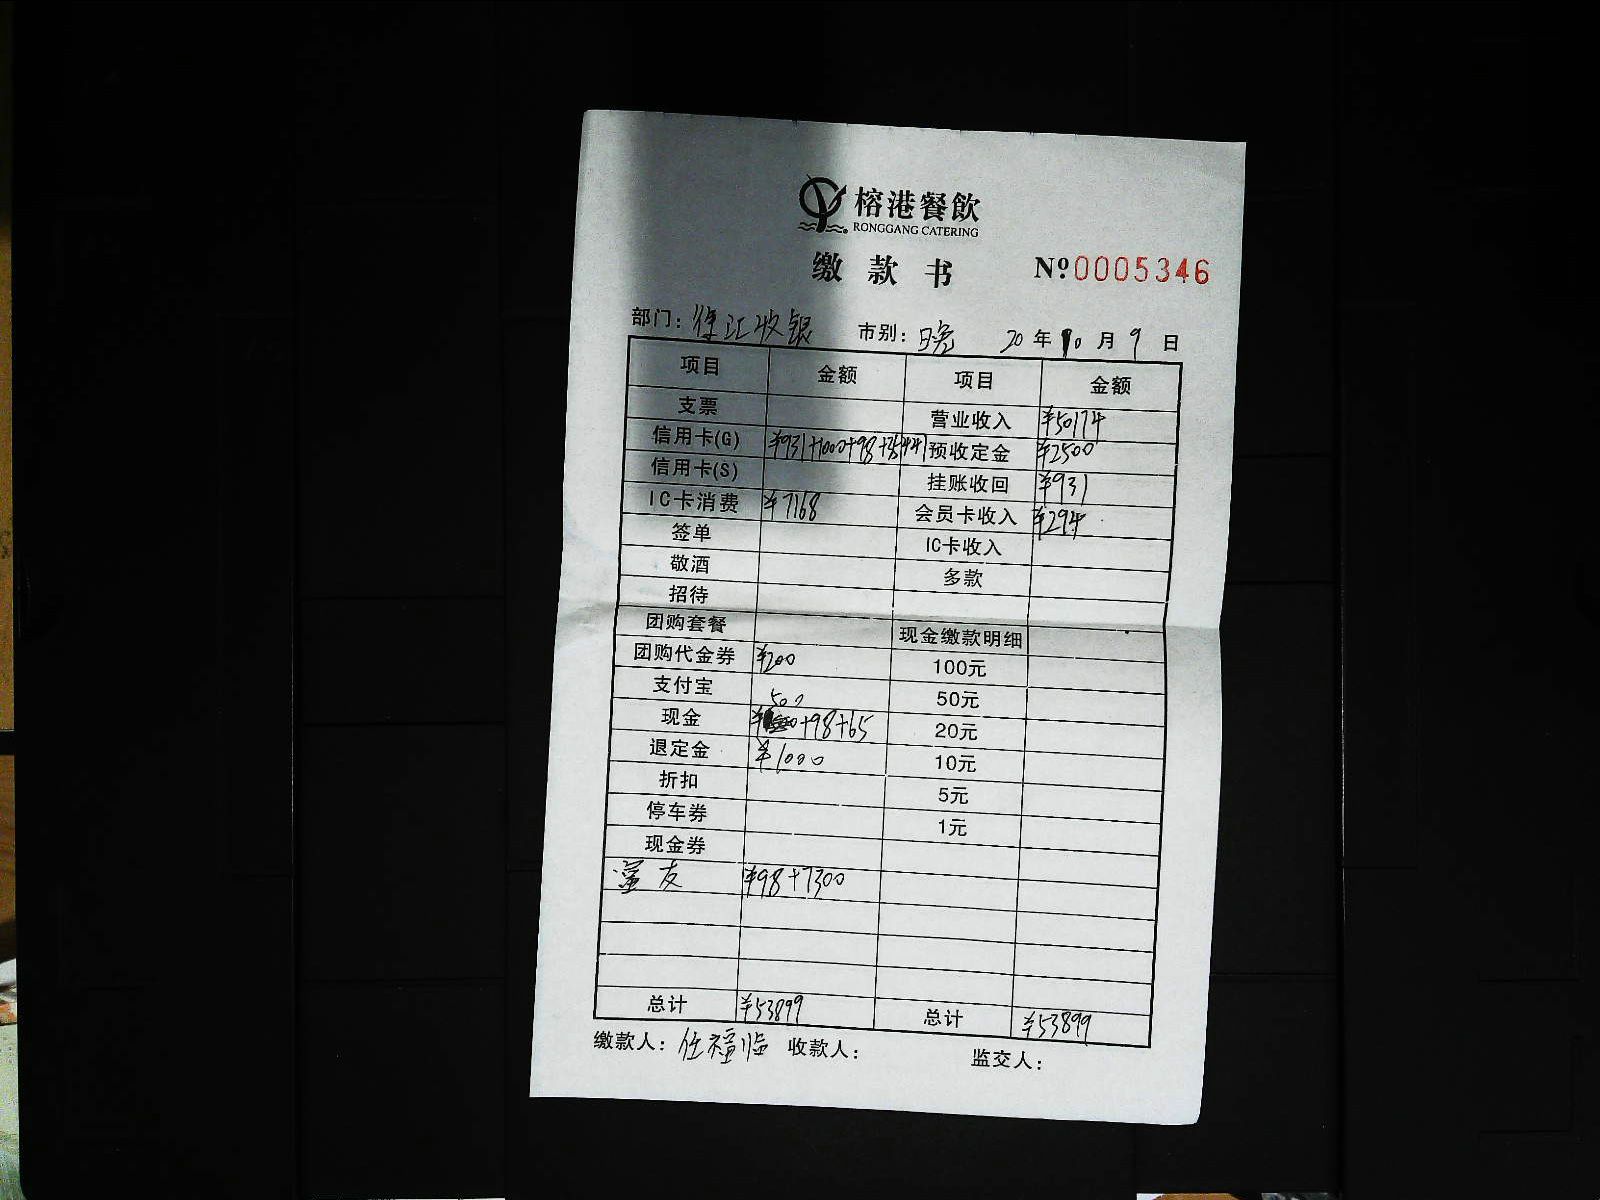 榕港餐飲
RONGGANG CATERING
缴款书 Nº0005346
部门：徐汇收银 市别：晚 20年10月9日
项目 金额 项目 金额
支票 营业收入 ¥50174
信用卡(G) ¥931+1000+98+35441 预收定金 ¥2500
信用卡(S) 挂账收回 ¥931
IC卡消费 ¥7168 会员卡收入 ¥294
签单 IC卡收入
敬酒 多款
招待
团购套餐 现金缴款明细
团购代金券 ¥200 100元
支付宝 50元
现金 ¥500+98+65 20元
退定金 ¥1000 10元
折扣 5元
停车券 1元
现金券
友 ¥98+7300
总计 ¥53899 总计 ¥53899
缴款人：任福临 收款人： 监交人：